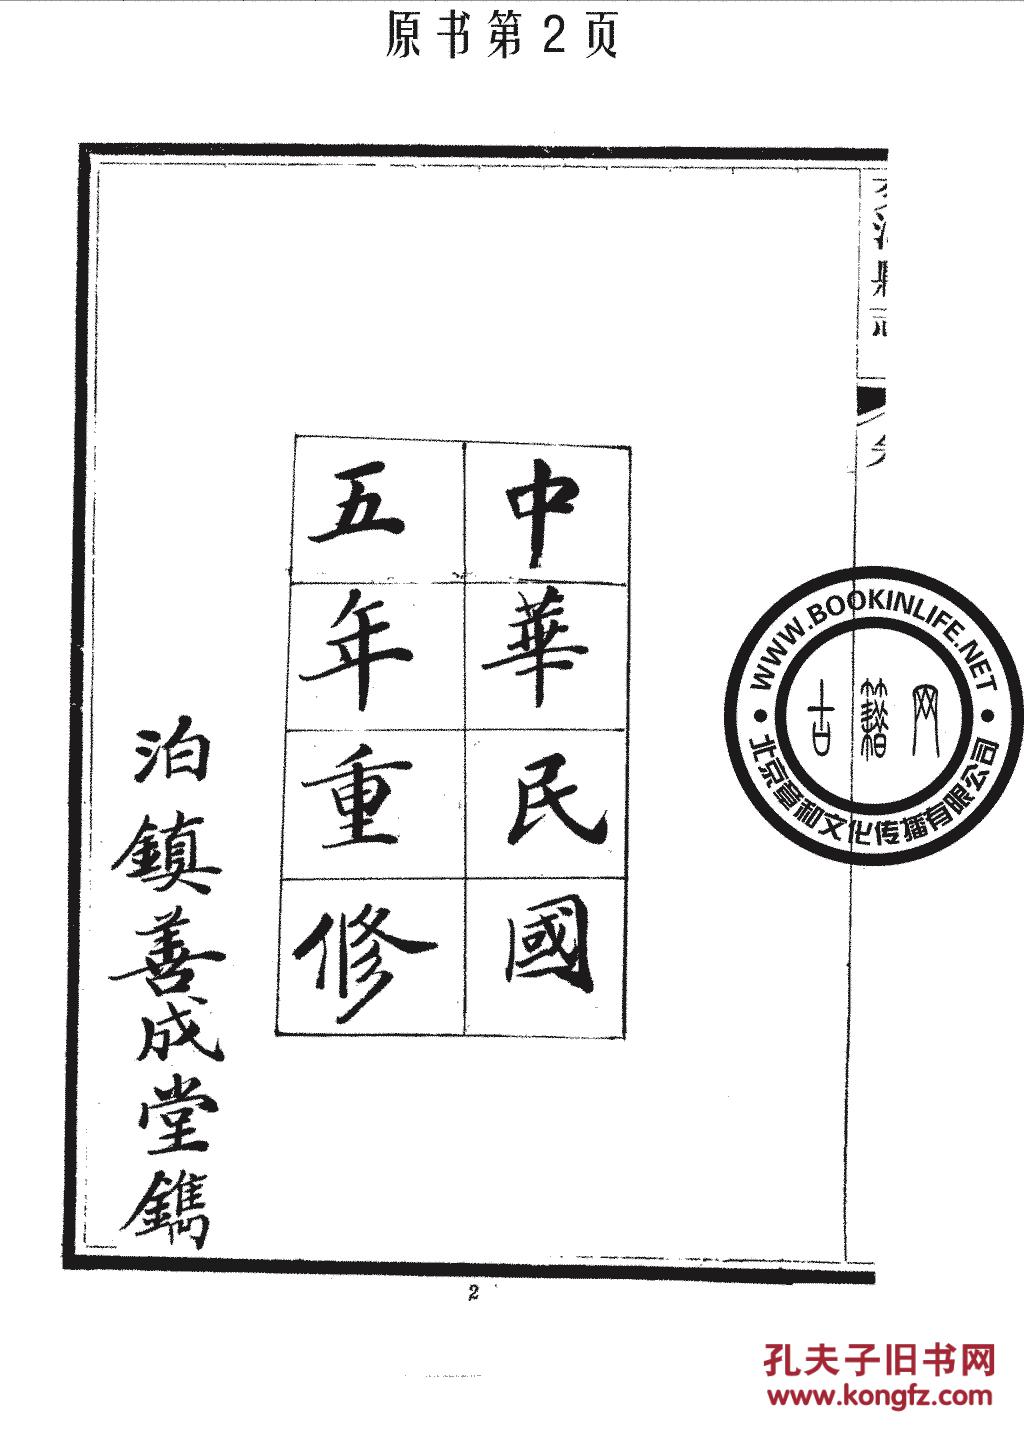 原书第2页
中華民國
五年重修
泊鎮善成堂鐫
WWW.BOOKINLIFE.NET
古籍网
北京章和文化传播有限公司
2
孔夫子旧书网
www.kongfz.com